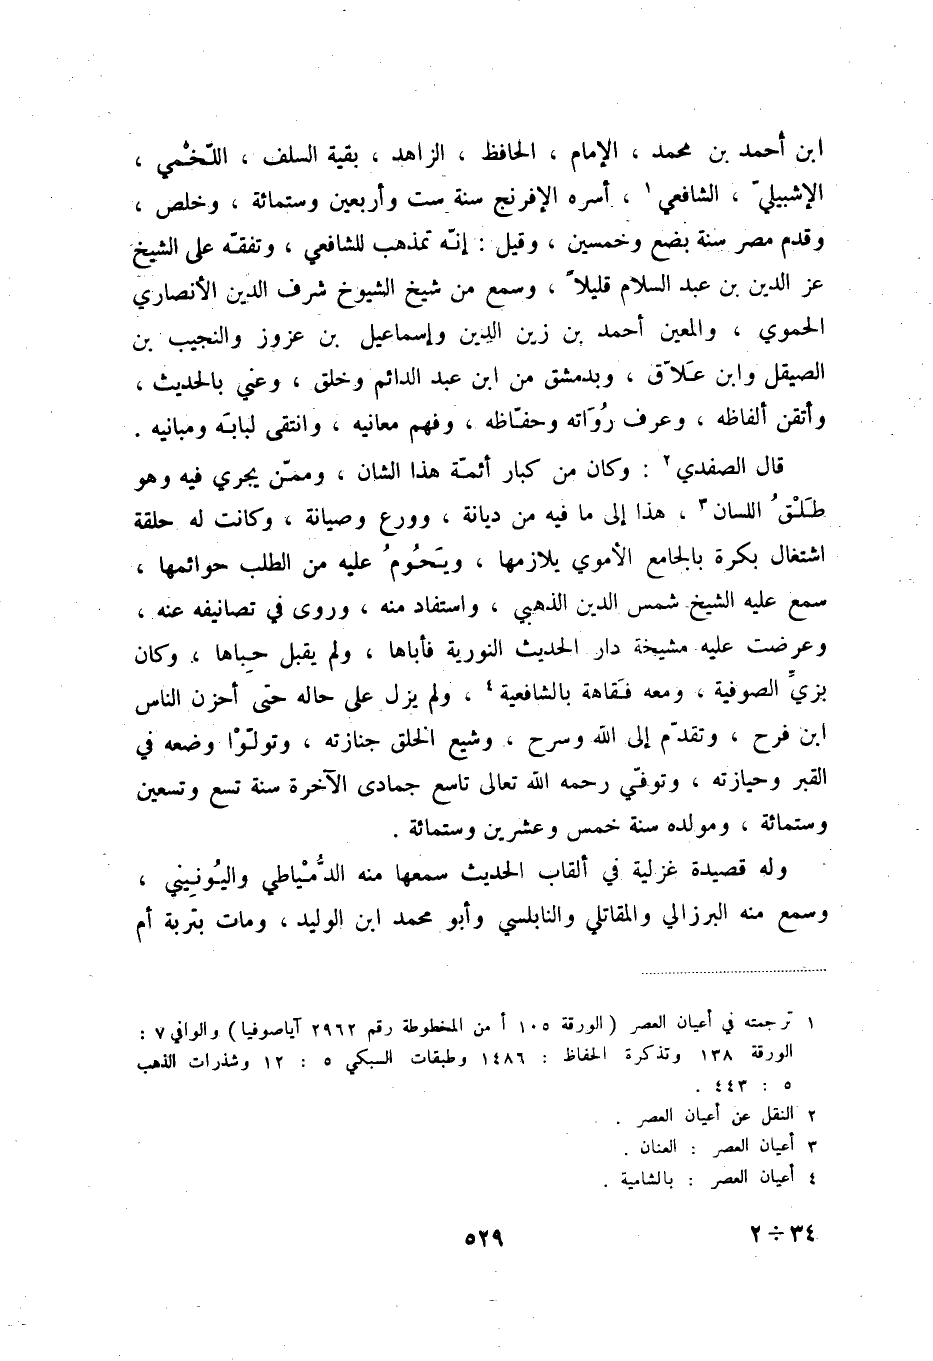 ابن أحمد بن محمد ، الإمام ، الحافظ ، الزاهد ، بقية السلف ، اللّخْمي ،
الإشبيليّ ، الشافعي ١ ، أسره الإفرنج سنة ست وأربعين وستمائة ، وخلص ،
وقدم مصر سنة بضع وخمسين ، وقيل : إنّه تمذهب للشافعي ، وتفقّه على الشيخ
عز الدين بن عبد السلام قليلاً ، وسمع من شيخ الشيوخ شرف الدين الأنصاري
الحموي ، والمعين أحمد بن زين الدين وإسماعيل بن عزوز والنجيب بن
الصيقل وابن عَلاّق ، وبدمشق من ابن عبد الدائم وخلق ، وعني بالحديث ،
وأتقن ألفاظه ، وعرف رُوَاته وحفّاظه ، وفهم معانيه ، وانتقى لبابَه ومبانيه .
قال الصفدي ٢ : وكان من كبار أئمّة هذا الشان ، وممّن يجري فيه وهو
طَلَقُ اللسان ٣ ، هذا إلى ما فيه من ديانة ، وورع وصيانة ، وكانت له حلقة
اشتغال بكرة بالجامع الأموي يلازمها ، ويَحُومُ عليه من الطلب حوائمها ،
سمع عليه الشيخ شمس الدين الذهبي ، واستفاد منه ، وروى في تصانيفه عنه ،
وعرضت عليه مشيخة دار الحديث النورية فأباها ، ولم يقبل حِباها ، وكان
بزيِّ الصوفية ، ومعه فَقاهة بالشافعية ٤ ، ولم يزل على حاله حتى أحزن الناس
ابن فرح ، وتقدّم إلى الله وسرح ، وشيع الخلق جنازته ، وتولّوْا وضعه في
القبر وحيازته ، وتوفّي رحمه الله تعالى تاسع جمادى الآخرة سنة تسع وتسعين
وستمائة ، ومولده سنة خمس وعشرين وستمائة .
وله قصيدة غزلية في ألقاب الحديث سمعها منه الدُّمْياطي واليُونِيني ،
وسمع منه البرزالي والمقاتلي والنابلسي وأبو محمد ابن الوليد ، ومات بتربة أم
١ ترجمته في أعيان العصر ( الورقة ١٠٥ أ من المخطوطة رقم ٢٩٦٢ آياصوفيا ) والوافي ٧ :
الورقة ١٣٨ وتذكرة الحفاظ : ١٤٨٦ وطبقات السبكي ٥ : ١٢ وشذرات الذهب
٥ : ٤٤٣ .
٢ النقل عن أعيان العصر .
٣ أعيان العصر : العنان .
٤ أعيان العصر : بالشامية .
٣٤ ÷ ٢
٥٢٩